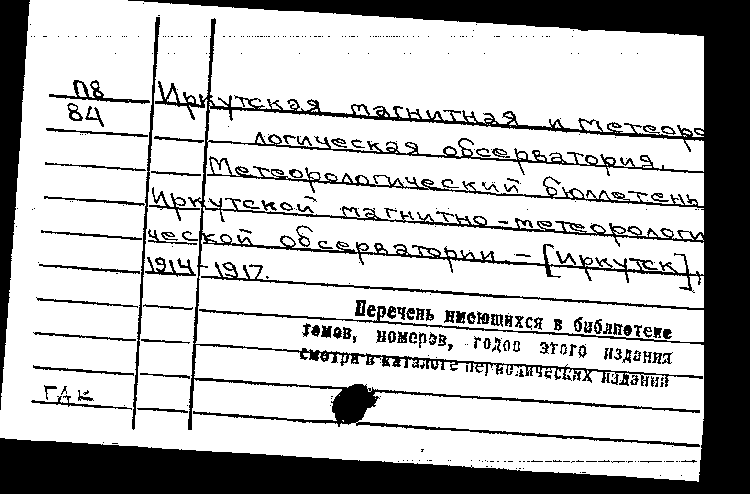 П8
84
Иркутская магнитная и метеоро
логическая обсерватория.
Метеорологический бюллетень
Иркутской магнитно-метеорологи
ческой обсерватории. – [Иркутск],
1914-1917.
Перечень имеющихся в библиотеке
томов, номеров, годов этого издания
смотри в каталоге периодических изданий
ГАК